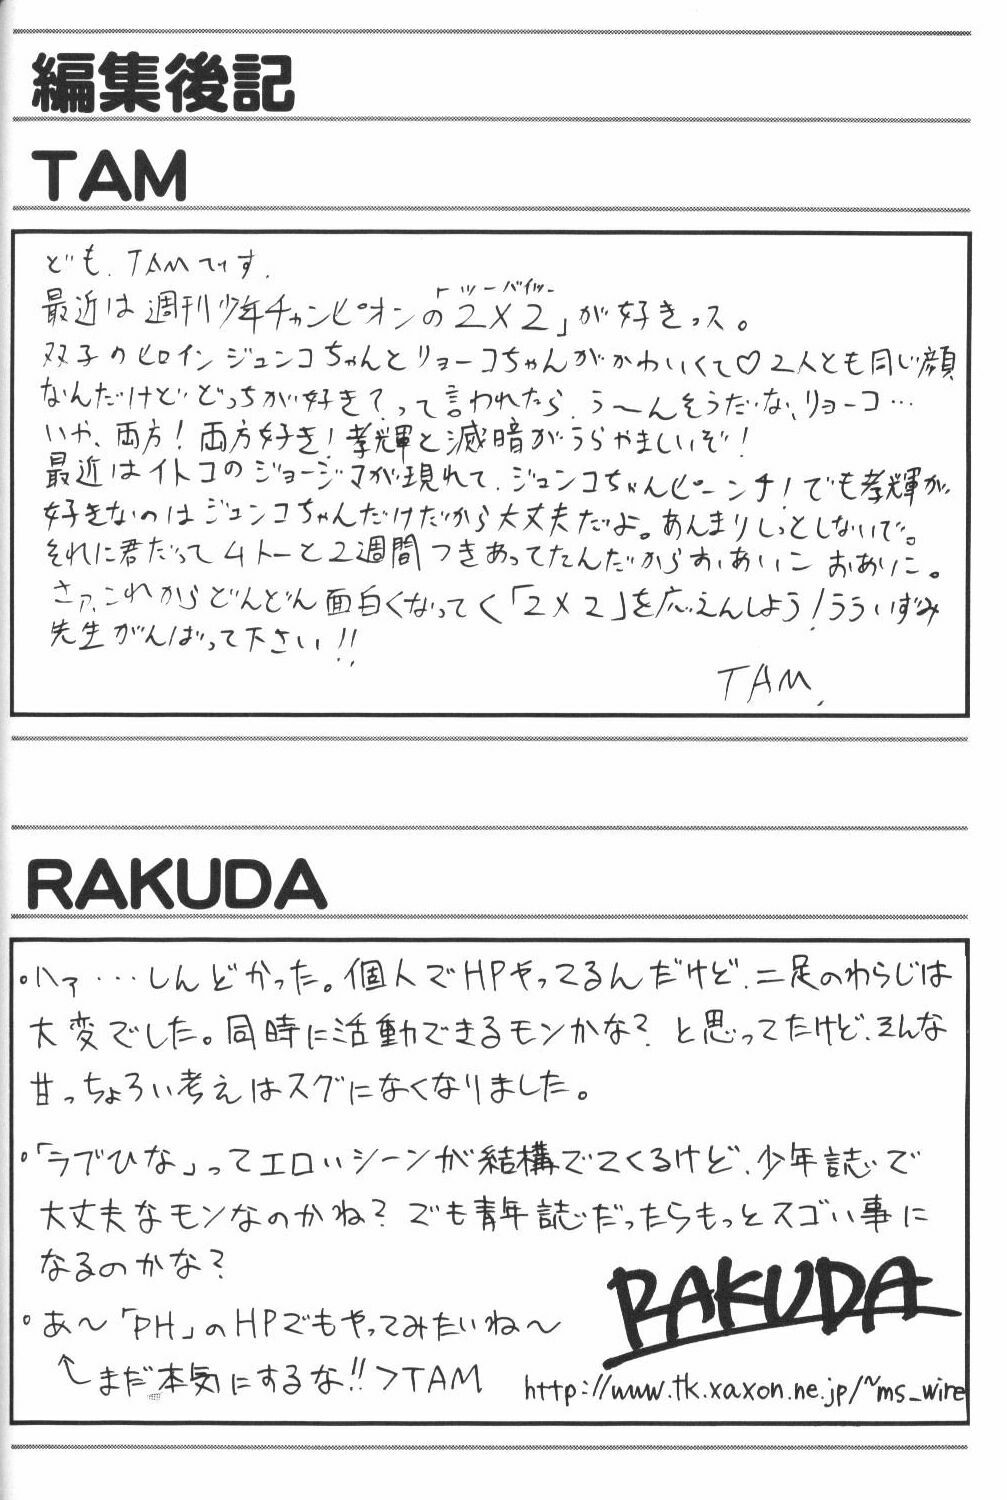 編集後記
TAM
ども、TAMです。
最近は週刊少年チャンピオンの「2×2」が好きっス。
トゥーバイツー
双子のヒロインジュンコちゃんとリョーコちゃんがかわいくて♡2人とも同じ顔
なんだけどどっちが好き?って言われたら、う〜んそうだな、リョーコ…
いや、両方!両方好き!孝輝と滅暗がうらやましいぞ!
最近はイトコのジョージマが現れて、ジュンコちゃんピーンチ!でも孝輝が
好きなのはジュンコちゃんだけだから大丈夫だよ。あんまりしっとしないで。
それに君だって ムトーと2週間つきあってたんだからおあいこおあいこ。
さァ、これからどんどん面白くなってく「2×2」を応えんしよう!ううい ずみ
先生がんばって下さい!!
TAM.
RAKUDA
・ハァ…しんどかった。個人でHPやってるんだけど、二足のわらじは
大変でした。同時に活動できるモンかな?と思ってたけど、そんな
甘っちょろい考えはスグになくなりました。
・「ラブひな」ってエロいシーンが結構でてくるけど、少年誌で
大丈夫なモンなのかね?でも青年誌だったらもっとスゴい事に
なるのかな?
・あ〜「PH」のHPでもやってみたいね〜
↑まだ本気にするな!!>TAM
RAKUDA
http://www.tk.xaxon.ne.jp/~ms_wire